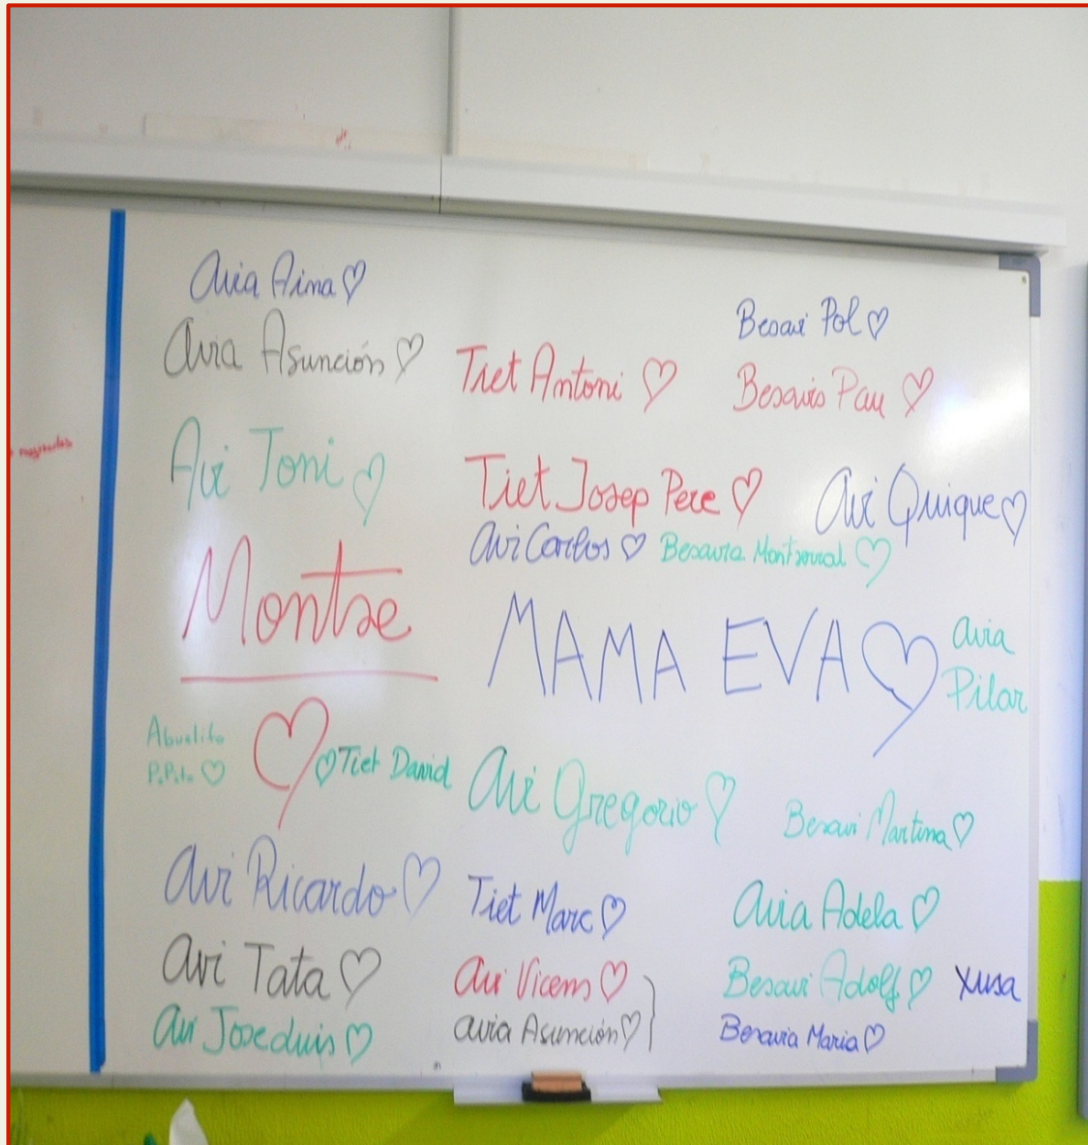 Avia Aina ♡
Avia Asunción ♡
Avi Toni ♡
Montse
Abuelito
♡ Tiet David
Avi Ricardo ♡
Avi Tata ♡
Avi Joseluis ♡
Tiet Antoni ♡
Tiet Josep Pere ♡
Avi Carlos ♡
Besavia Montserrat ♡
MAMA EVA ♡
Avi Gregorio ♡
Tiet Marc ♡
Avi Vicens ♡
avia Asunción ♡
Besavi Pol ♡
Besavis Pau ♡
Avi Quique ♡
avia
Pilar
Besavi Martina ♡
Avia Adela ♡
Besavi Adolf ♡
Xusa
Besavia Maria ♡